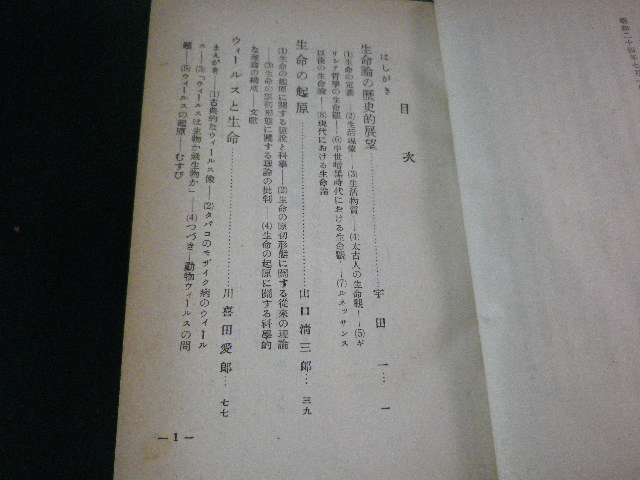 昭和二十四年七
目次
はしがき
生命論の歴史的展望……宇田一…一
(1)生命の定義—(2)生活現像—(3)生活物質—(4)太古人の生命観—(5)ギ
リシア哲學の生命観—(6)中世暗黒時代における生命観—(7)ルネッサンス
以後の生命論—(8)現代における生命論
生命の起原……出口清三郎…三九
(1)生命の起原に關する原說と科學—(2)生命の原初形態に關する従來の理論
—(3)生命の原初形態に關する理論の批判—(4)生命の起原に關する科學的
な理論の構成—文獻
ウィールスと生命……川喜田愛郎…七七
まえがき—(1)古典的なウィールス像—(2)タバコのモザイク病のウィール
ス—(3)「ウィールスは生物か無生物か」—(4)つづき—動物ウィールスの問
題—(5)ウィールスの起原—むすび
— 1 —